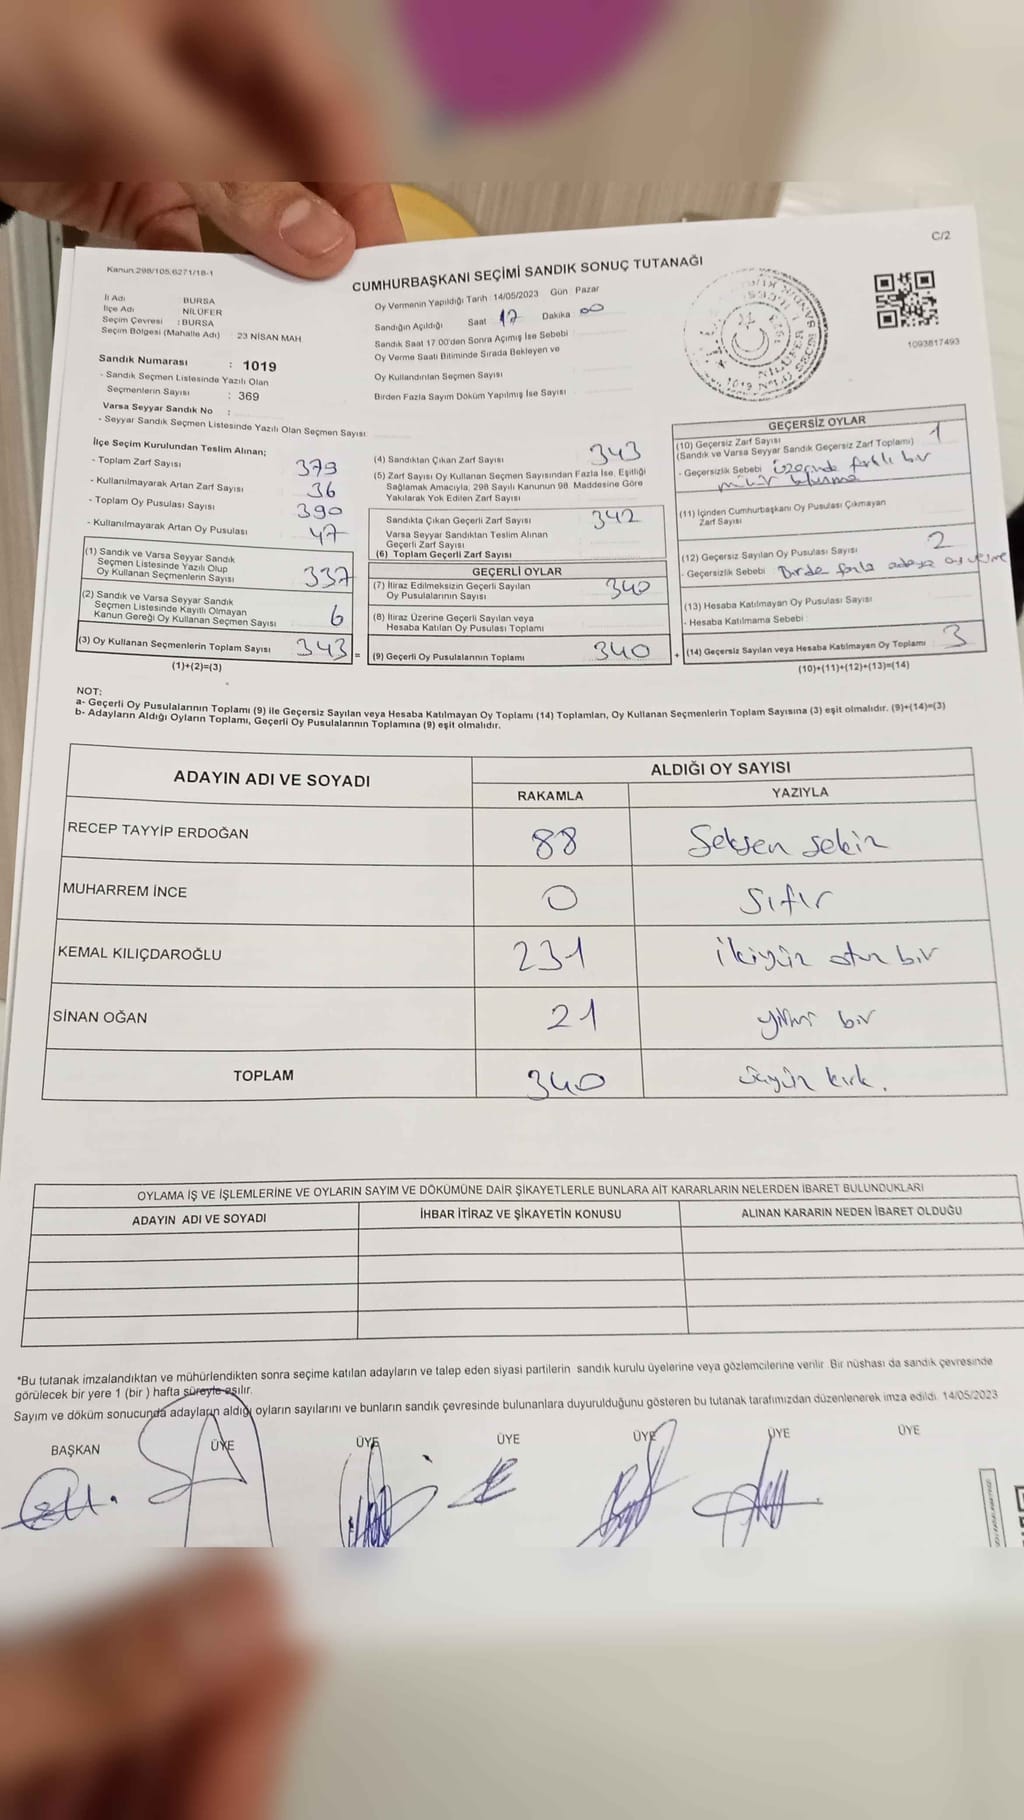 C/2
Kanun.298/105,6271/18-1
CUMHURBAŞKANI SEÇİMİ SANDIK SONUÇ TUTANAĞI
İl Adı BURSA
İlçe Adı NİLÜFER
Seçim Çevresi : BURSA
Seçim Bölgesi (Mahalle Adı) : 23 NİSAN MAH
Sandık Numarası : 1019
- Sandık Seçmen Listesinde Yazılı Olan
Seçmenlerin Sayısı : 369
Varsa Seyyar Sandık No :
- Seyyar Sandık Seçmen Listesinde Yazılı Olan Seçmen Sayısı:
Oy Vermenin Yapıldığı Tarih : 14/05/2023 Gün : Pazar
Sandığın Açıldığı Saat 17 Dakika 00
Sandık Saat 17:00'den Sonra Açımış İse Sebebi :
Oy Verme Saati Bitiminde Sırada Bekleyen ve
Oy Kullandırılan Seçmen Sayısı
Birden Fazla Sayım Döküm Yapılmış İse Sayısı
1093817493
NİLÜFER
İlçe Seçim Kurulundan Teslim Alınan;
- Toplam Zarf Sayısı 379
- Kullanılmayarak Artan Zarf Sayısı 36
- Toplam Oy Pusulası Sayısı 390
- Kullanılmayarak Artan Oy Pusulası 47
(1) Sandık ve Varsa Seyyar Sandık
Seçmen Listesinde Yazılı Olup
Oy Kullanan Seçmenlerin Sayısı 337
(2) Sandık ve Varsa Seyyar Sandık
Seçmen Listesinde Kayıtlı Olmayan
Kanun Gereği Oy Kullanan Seçmen Sayısı 6
(3) Oy Kullanan Seçmenlerin Toplam Sayısı 343 =
(1)+(2)=(3)
(4) Sandıktan Çıkan Zarf Sayısı 343
(5) Zarf Sayısı Oy Kullanan Seçmen Sayısından Fazla İse, Eşitliği
Sağlamak Amacıyla, 298 Sayılı Kanunun 98. Maddesine Göre
Yakılarak Yok Edilen Zarf Sayısı
Sandıkta Çıkan Geçerli Zarf Sayısı 342
Varsa Seyyar Sandıktan Teslim Alınan
Geçerli Zarf Sayısı
(6) Toplam Geçerli Zarf Sayısı
GEÇERLİ OYLAR
(7) İtiraz Edilmeksizin Geçerli Sayılan
Oy Pusulalarının Sayısı 340
(8) İtiraz Üzerine Geçerli Sayılan veya
Hesaba Katılan Oy Pusulası Toplamı
(9) Geçerli Oy Pusulalarının Toplamı 340 +
GEÇERSİZ OYLAR
(10) Geçersiz Zarf Sayısı 1
(Sandık ve Varsa Seyyar Sandık Geçersiz Zarf Toplamı)
- Geçersizlik Sebebi üzerinde farklı bir
mühür bulunma
(11) İçinden Cumhurbaşkanı Oy Pusulası Çıkmayan
Zarf Sayısı
(12) Geçersiz Sayılan Oy Pusulası Sayısı 2
- Geçersizlik Sebebi Birde fazla adaya oy verme
(13) Hesaba Katılmayan Oy Pusulası Sayısı
- Hesaba Katılmama Sebebi :
(14) Geçersiz Sayılan veya Hesaba Katılmayan Oy Toplamı 3
(10)+(11)+(12)+(13)=(14)
NOT:
a- Geçerli Oy Pusulalarının Toplamı (9) ile Geçersiz Sayılan veya Hesaba Katılmayan Oy Toplamı (14) Toplamları, Oy Kullanan Seçmenlerin Toplam Sayısına (3) eşit olmalıdır. (9)+(14)=(3)
b- Adayların Aldığı Oyların Toplamı, Geçerli Oy Pusulalarının Toplamına (9) eşit olmalıdır.
ADAYIN ADI VE SOYADI ALDIĞI OY SAYISI
RAKAMLA YAZIYLA
RECEP TAYYİP ERDOĞAN 88 Seksen sekiz
MUHARREM İNCE 0 Sıfır
KEMAL KILIÇDAROĞLU 231 ikiyüz otuz bir
SİNAN OĞAN 21 yirmi bir
TOPLAM 340 üçyüz kırk.
OYLAMA İŞ VE İŞLEMLERİNE VE OYLARIN SAYIM VE DÖKÜMÜNE DAİR ŞİKAYETLERLE BUNLARA AİT KARARLARIN NELERDEN İBARET BULUNDUKLARI
ADAYIN ADI VE SOYADI İHBAR İTİRAZ VE ŞİKAYETİN KONUSU ALINAN KARARIN NEDEN İBARET OLDUĞU
*Bu tutanak imzalandıktan ve mühürlendikten sonra seçime katılan adayların ve talep eden siyasi partilerin sandık kurulu üyelerine veya gözlemcilerine verilir. Bir nüshası da sandık çevresinde
görülecek bir yere 1 (bir ) hafta süreyle asılır.
Sayım ve döküm sonucunda adayların aldığı oyların sayılarını ve bunların sandık çevresinde bulunanlara duyurulduğunu gösteren bu tutanak tarafımızdan düzenlenerek imza edildi. 14/05/2023
BAŞKAN ÜYE ÜYE ÜYE ÜYE ÜYE ÜYE